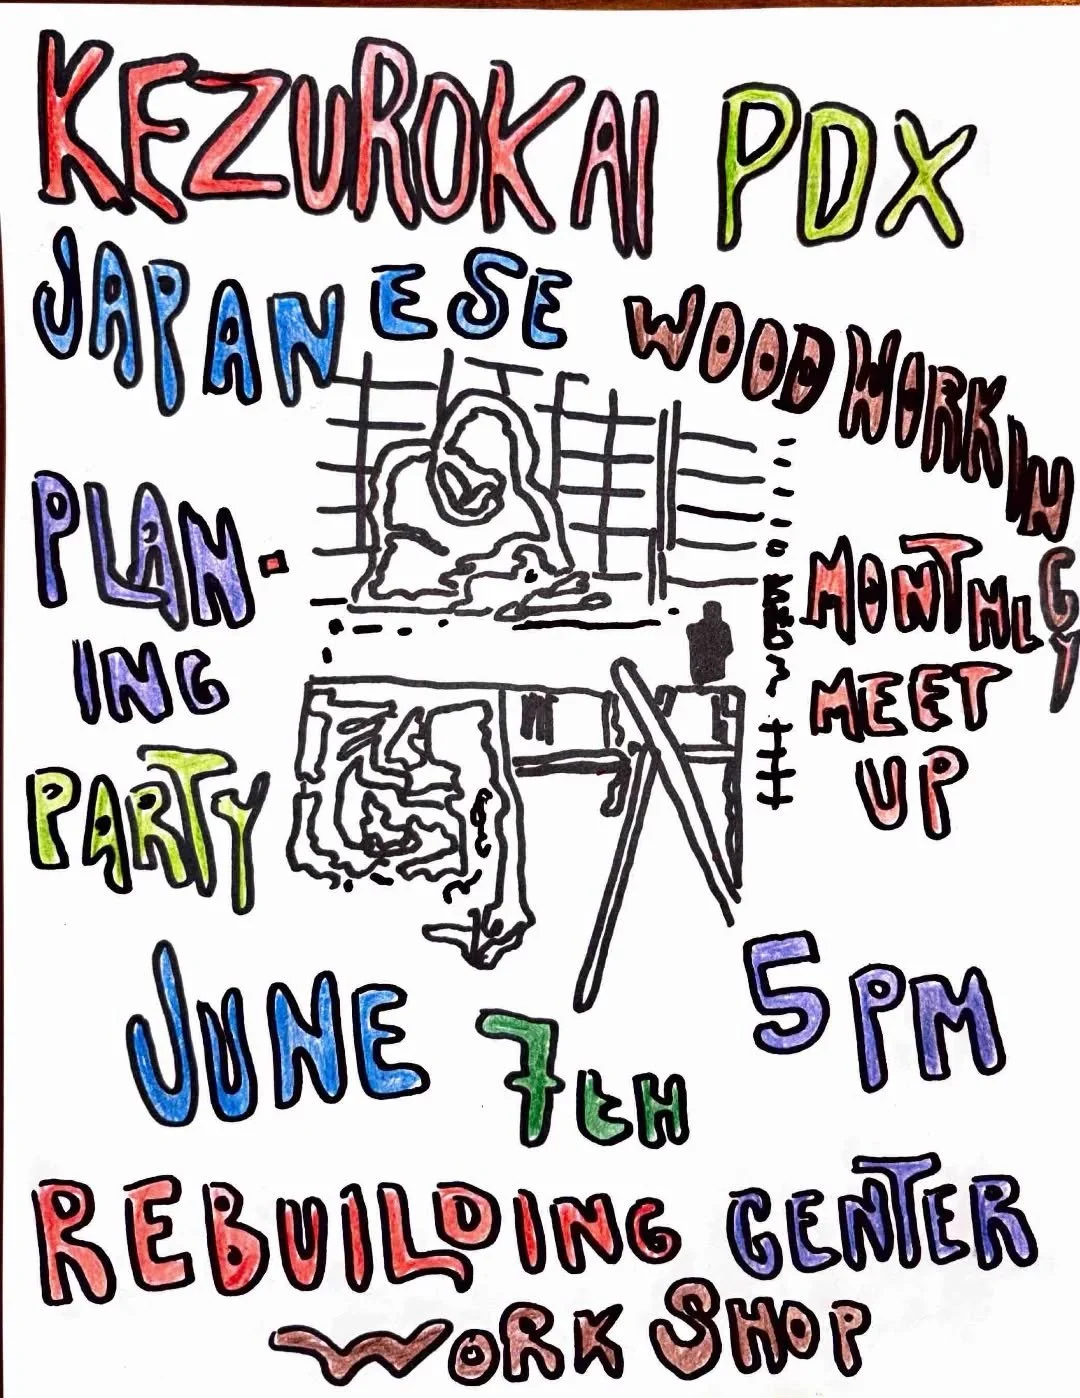 KEZUROKAI PDX
JAPANESE WOODWORKING
PLAN-
ING
PARTY
MONTHLY
MEET
UP
JUNE 7tH 5PM
REBUILDING CENTER
WORKSHOP